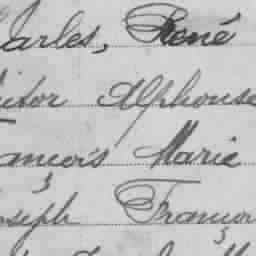 arles, René
ictor Alphonse
ançois Marie
oseph Françoi